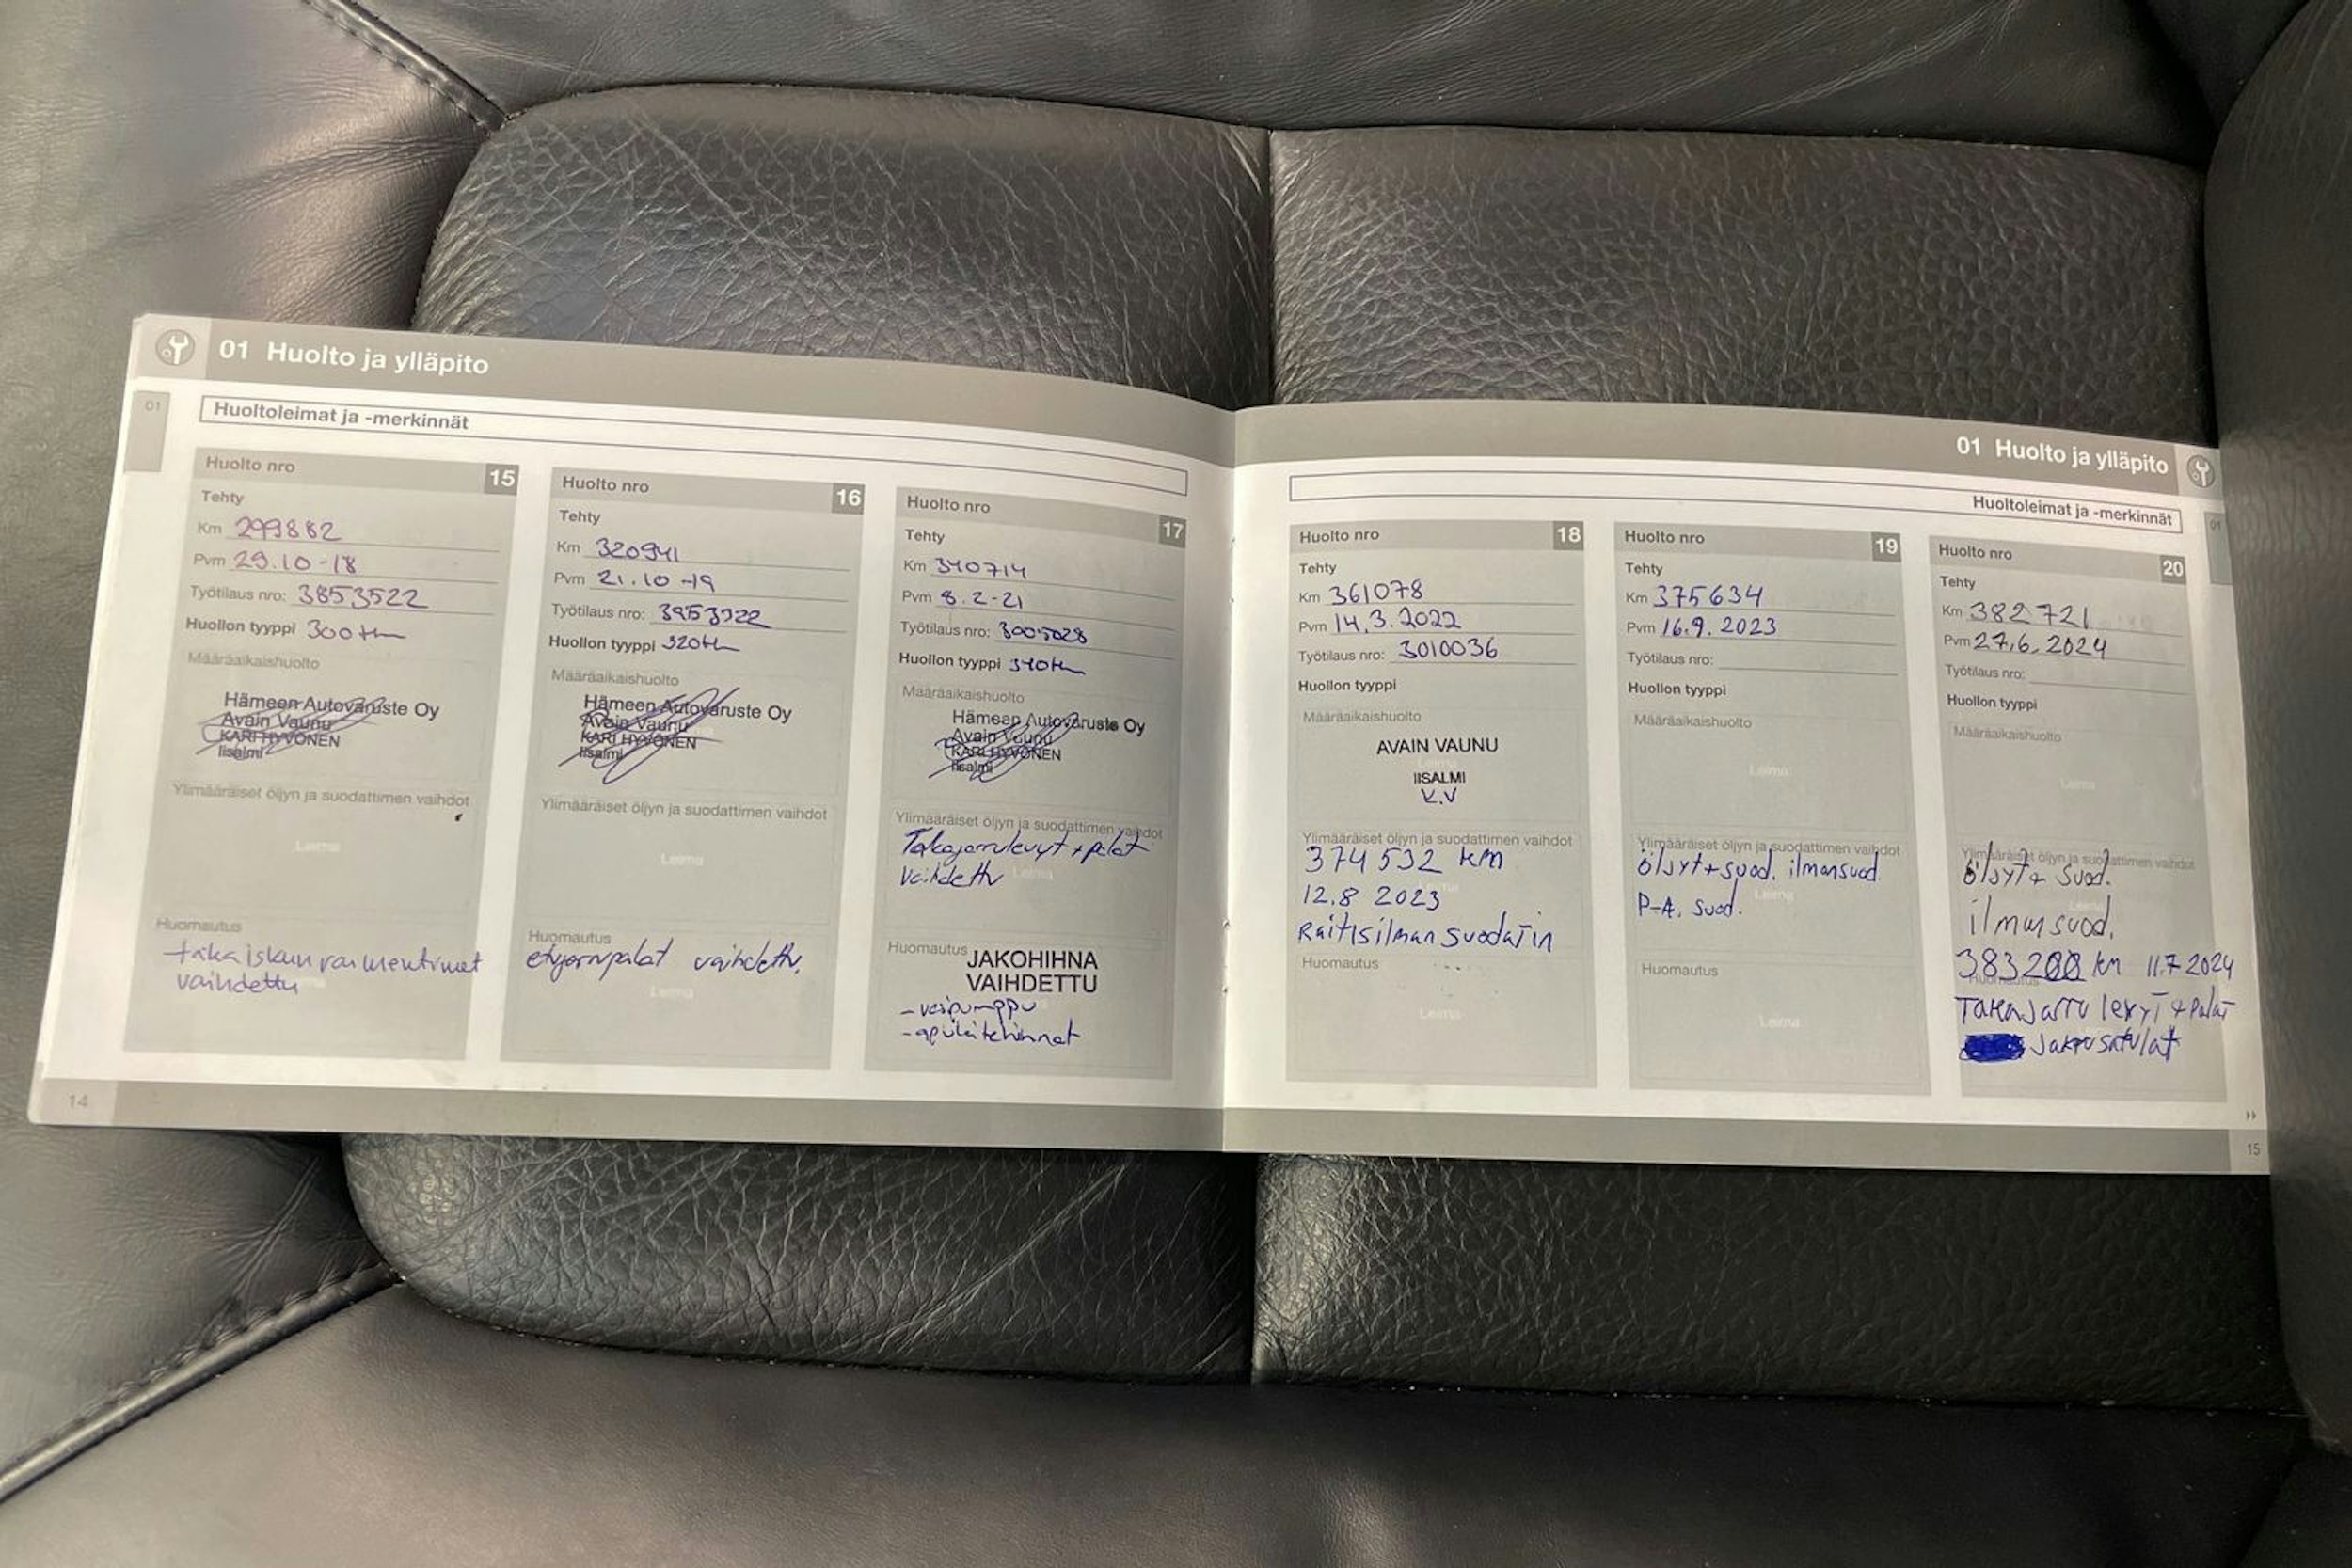 01 Huolto ja ylläpito
01
Huoltoleimat ja -merkinnät
Huolto nro 15
Tehty
Km 299882
Pvm 29.10-18
Työtilaus nro: 3853522
Huollon tyyppi 300th
Määräaikaishuolto
Hämeen Autovaruste Oy
Avain Vaunu
KARI HYVÖNEN
Iisalmi
Ylimääräiset öljyn ja suodattimen vaihdot
Leima
Huomautus
taka iskunvaimentimet
vaihdettu
Huolto nro 16
Tehty
Km 320941
Pvm 21.10-19
Työtilaus nro: 3953922
Huollon tyyppi 320th
Määräaikaishuolto
Hämeen Autovaruste Oy
Avain Vaunu
KARI HYVÖNEN
Iisalmi
Ylimääräiset öljyn ja suodattimen vaihdot
Leima
Huomautus
etujarrupalat vaihdettu.
Leima
Huolto nro 17
Tehty
Km 340714
Pvm 8.2-21
Työtilaus nro: 3005028
Huollon tyyppi 340th
Määräaikaishuolto
Hämeen Autovaruste Oy
Avain Vaunu
KARI HYVÖNEN
Iisalmi
Ylimääräiset öljyn ja suodattimen vaihdot
Takajarrulevyt + palat
vaihdettu
Leima
Huomautus
JAKOHIHNA
VAIHDETTU
- vesipumppu
- apulaitehihnat
14
01 Huolto ja ylläpito
Huoltoleimat ja -merkinnät
01
Huolto nro 18
Tehty
Km 361078
Pvm 14.3.2022
Työtilaus nro: 3010036
Huollon tyyppi
Määräaikaishuolto
AVAIN VAUNU
Leima
IISALMI
K.V
Ylimääräiset öljyn ja suodattimen vaihdot
374 532 km
12.8 2023
Raitisilman suodatin
Huomautus
Leima
Huolto nro 19
Tehty
Km 375634
Pvm 16.9.2023
Työtilaus nro:
Huollon tyyppi
Määräaikaishuolto
Leima
Ylimääräiset öljyn ja suodattimen vaihdot
öljyt + suod. ilmansuod.
Leima
P-A. suod.
Huomautus
Leima
Huolto nro 20
Tehty
Km 382 721
Pvm 27.6.2024
Työtilaus nro:
Huollon tyyppi
Määräaikaishuolto
Leima
Ylimääräiset öljyn ja suodattimen vaihdot
öljyt + suod.
ilmansuod.
383200 km 11.7 2024
Huomautus
Takajarru levyt + palat
Jarrusatulat
15